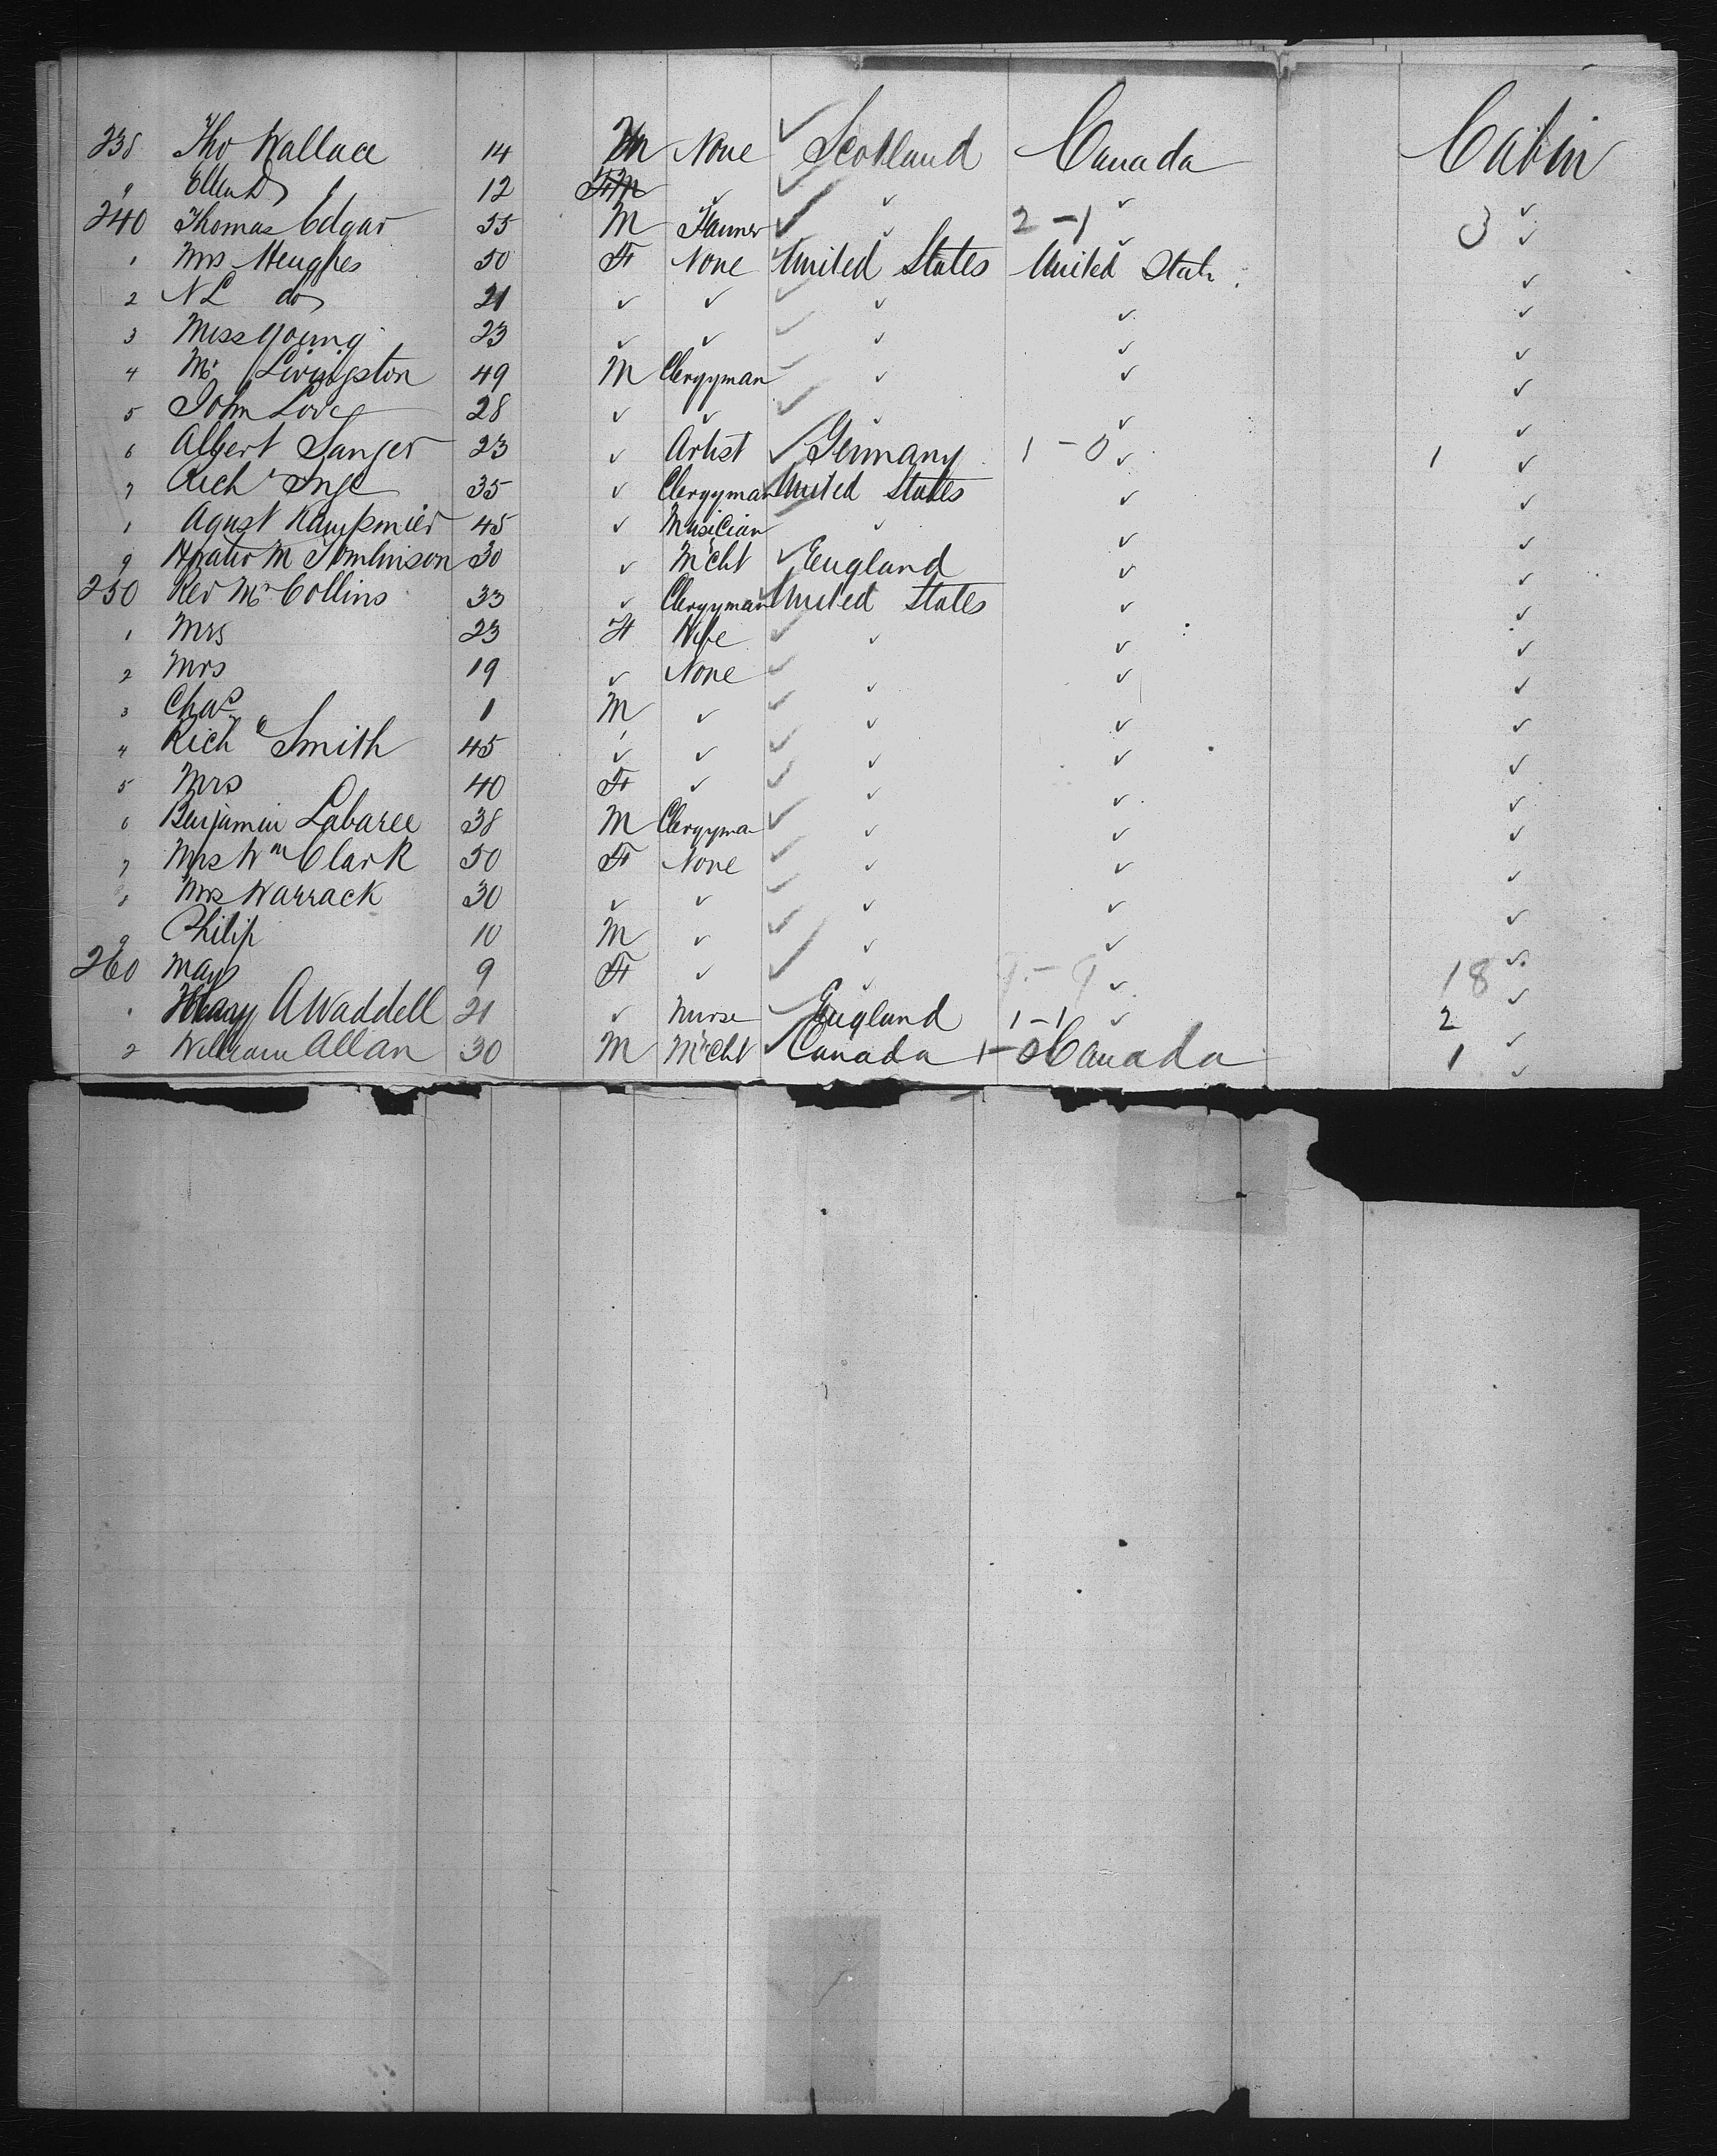 238 Tho Wallace 14 M None ✓ Scotland Canada Cabin
9 Ellen Do 12 F ✓ ✓ ✓ ✓ ✓
240 Thomas Edgar 55 M Farmer ✓ ✓ 2 - 1 ✓ 3 ✓
1 Mrs Heughes 50 F None United States United Stats ✓
2 N L do 21 ✓ ✓ ✓ ✓ ✓ ✓
3 Miss Young 23 ✓ ✓ ✓ ✓ ✓ ✓
4 Mr Livingston 49 M Clergyman ✓ ✓ ✓ ✓
5 John Love 28 ✓ ✓ ✓ ✓ ✓ ✓
6 Albert Sanger 23 ✓ Artist ✓ Germany 1 - 0 ✓ 1 ✓
7 Richd Inge 35 ✓ Clergyman United States ✓ ✓
1 Agust Kampmier 45 ✓ Musician ✓ ✓ ✓
9 Horatio M Tomlinson 30 ✓ Mcht ✓ England ✓ ✓
250 Rev Mr Collins 33 ✓ Clergyman United States ✓ ✓
1 Mrs 23 F Wife ✓ ✓ ✓ ✓
2 Mrs 19 ✓ None ✓ ✓ ✓ ✓
3 Chas 1 M ✓ ✓ ✓ ✓ ✓
4 Richd Smith 45 ✓ ✓ ✓ ✓ ✓ ✓
5 Mrs 40 F ✓ ✓ ✓ ✓ ✓
6 Benjamin Labaree 38 M Clergyman ✓ ✓ ✓ ✓
7 Mrs Wm Clark 50 F None ✓ ✓ ✓ ✓
8 Mrs Warrack 30 ✓ ✓ ✓ ✓ ✓ ✓
9 Philip 10 M ✓ ✓ ✓ ✓ ✓
260 May 9 F ✓ ✓ ✓ 9 - 9 ✓ 18 ✓
1 A Waddell 21 ✓ Nurse ✓ England 1 - 1 ✓ 2 ✓
2 William Allan 30 M Mcht ✓ Canada 1 - 0 Canada 1 ✓